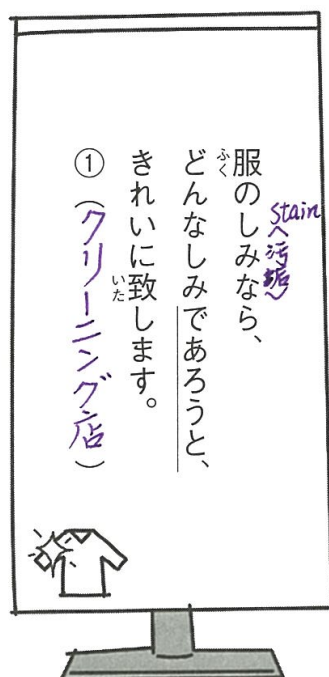 服のしみなら、
ふく
stain
〈汚垢〉
どんなしみであろうと、
きれいに致します。
いた
①（クリーニング店）